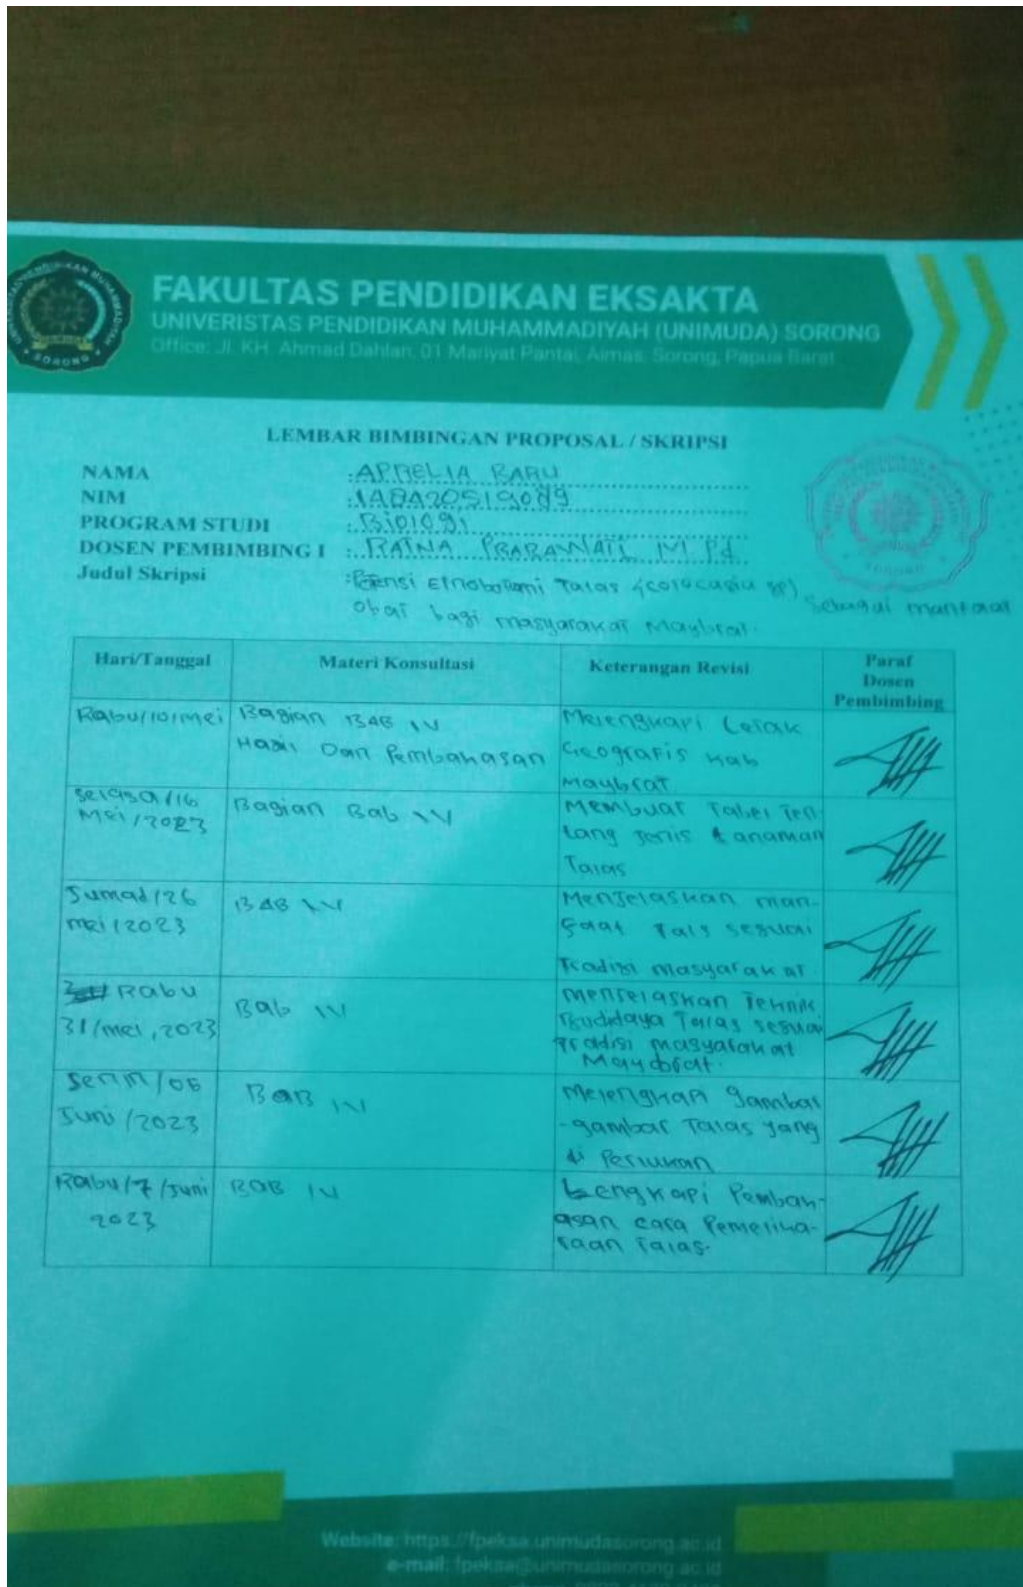 FAKULTAS PENDIDIKAN EKSAKTA
UNIVERISTAS PENDIDIKAN MUHAMMADIYAH (UNIMUDA) SORONG
Office: Jl. KH. Ahmad Dahlan, 01 Mariyat Pantai, Aimas, Sorong, Papua Barat
LEMBAR BIMBINGAN PROPOSAL / SKRIPSI
NAMA : APRELIA BARU
NIM :
PROGRAM STUDI : Biologi
DOSEN PEMBIMBING I : RATNA PRABAWATI, M.Pd
Judul Skripsi : Potensi Etnobotami Talas (colocasia sp) sebagai manfaat
obat bagi masyarakat Maybrat.
Hari/Tanggal Materi Konsultasi Keterangan Revisi Paraf
Dosen
Pembimbing
Rabu/10/mei Bagian BAB IV Melengkapi Letak
Hasil Dan Pembahasan Geografis Kab
Maybrat
Selasa/16 Bagian Bab IV Membuat Tabel Ten
Mei/2023 tang Jenis tanaman
Talas
Jumad/26 BAB IV Menjelaskan man-
mei/2023 faat Tals sesuai
Tradisi masyarakat
Rabu Bab IV menjelaskan Tehnik
31/mei,2023 Budidaya Talas sesuai
Tradisi masyarakat
Maybrat.
Senin/05 BAB IV Melengkapi gambar
Juni/2023 -gambar Talas yang
di Perlukan
Rabu/7/Juni BAB IV Lengkapi Pembah-
2023 asan cara Pemeliha-
raan Talas.
Website: https://fpeksa.unimudasorong.ac.id
e-mail: fpeksa@unimudasorong.ac.id